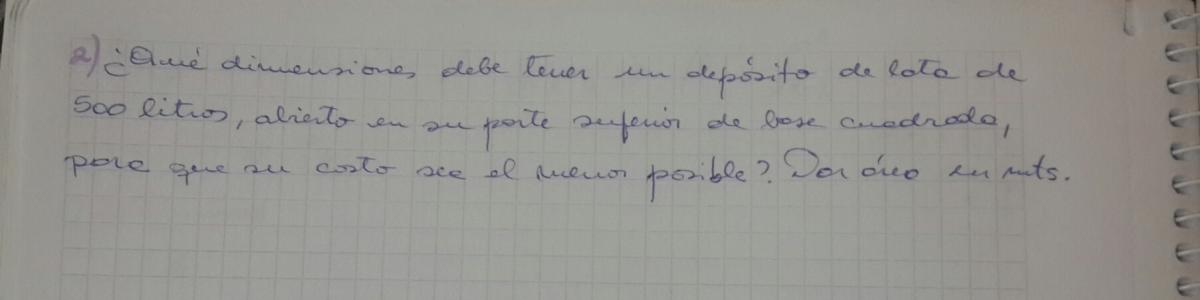 2) ¿Qué dimensiones debe tener un depósito de lata de
500 litros, abierto en su parte superior de base cuadrada,
para que su costo sea el menor posible? Dar área en mts.